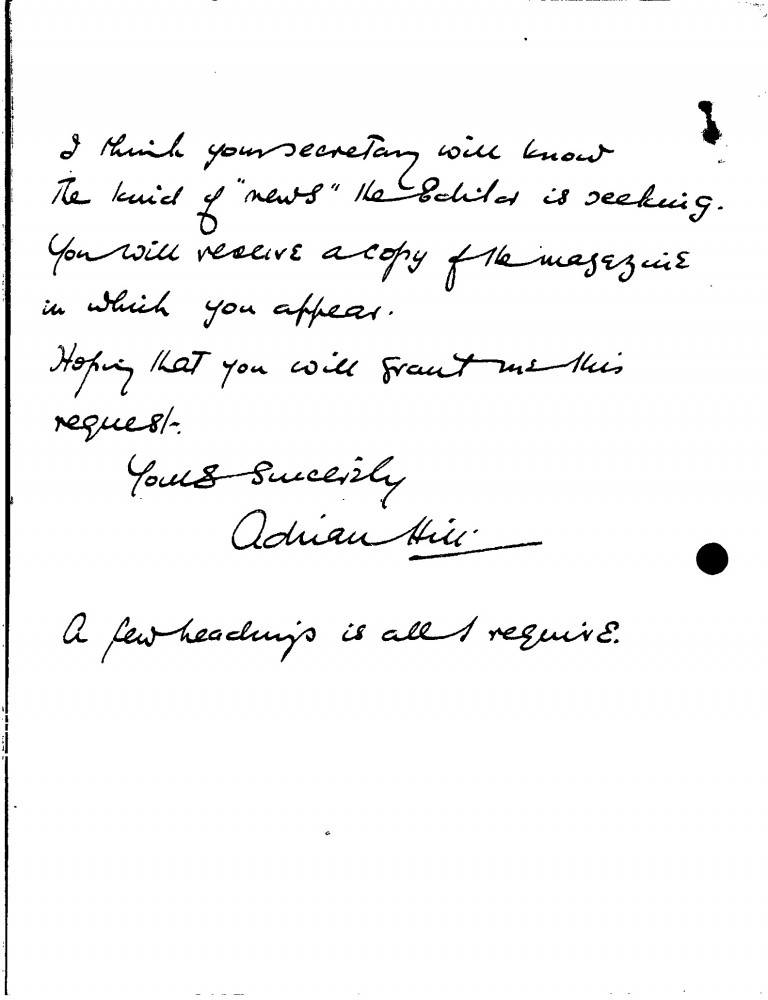 I think your secretary will know
the kind of "news" the Editor is seeking.
You will receive a copy of the magazine
in which you appear.
Hoping that you will grant me this
request.
Yours Sincerely
Adrian Hill.
A few headings is all I require.